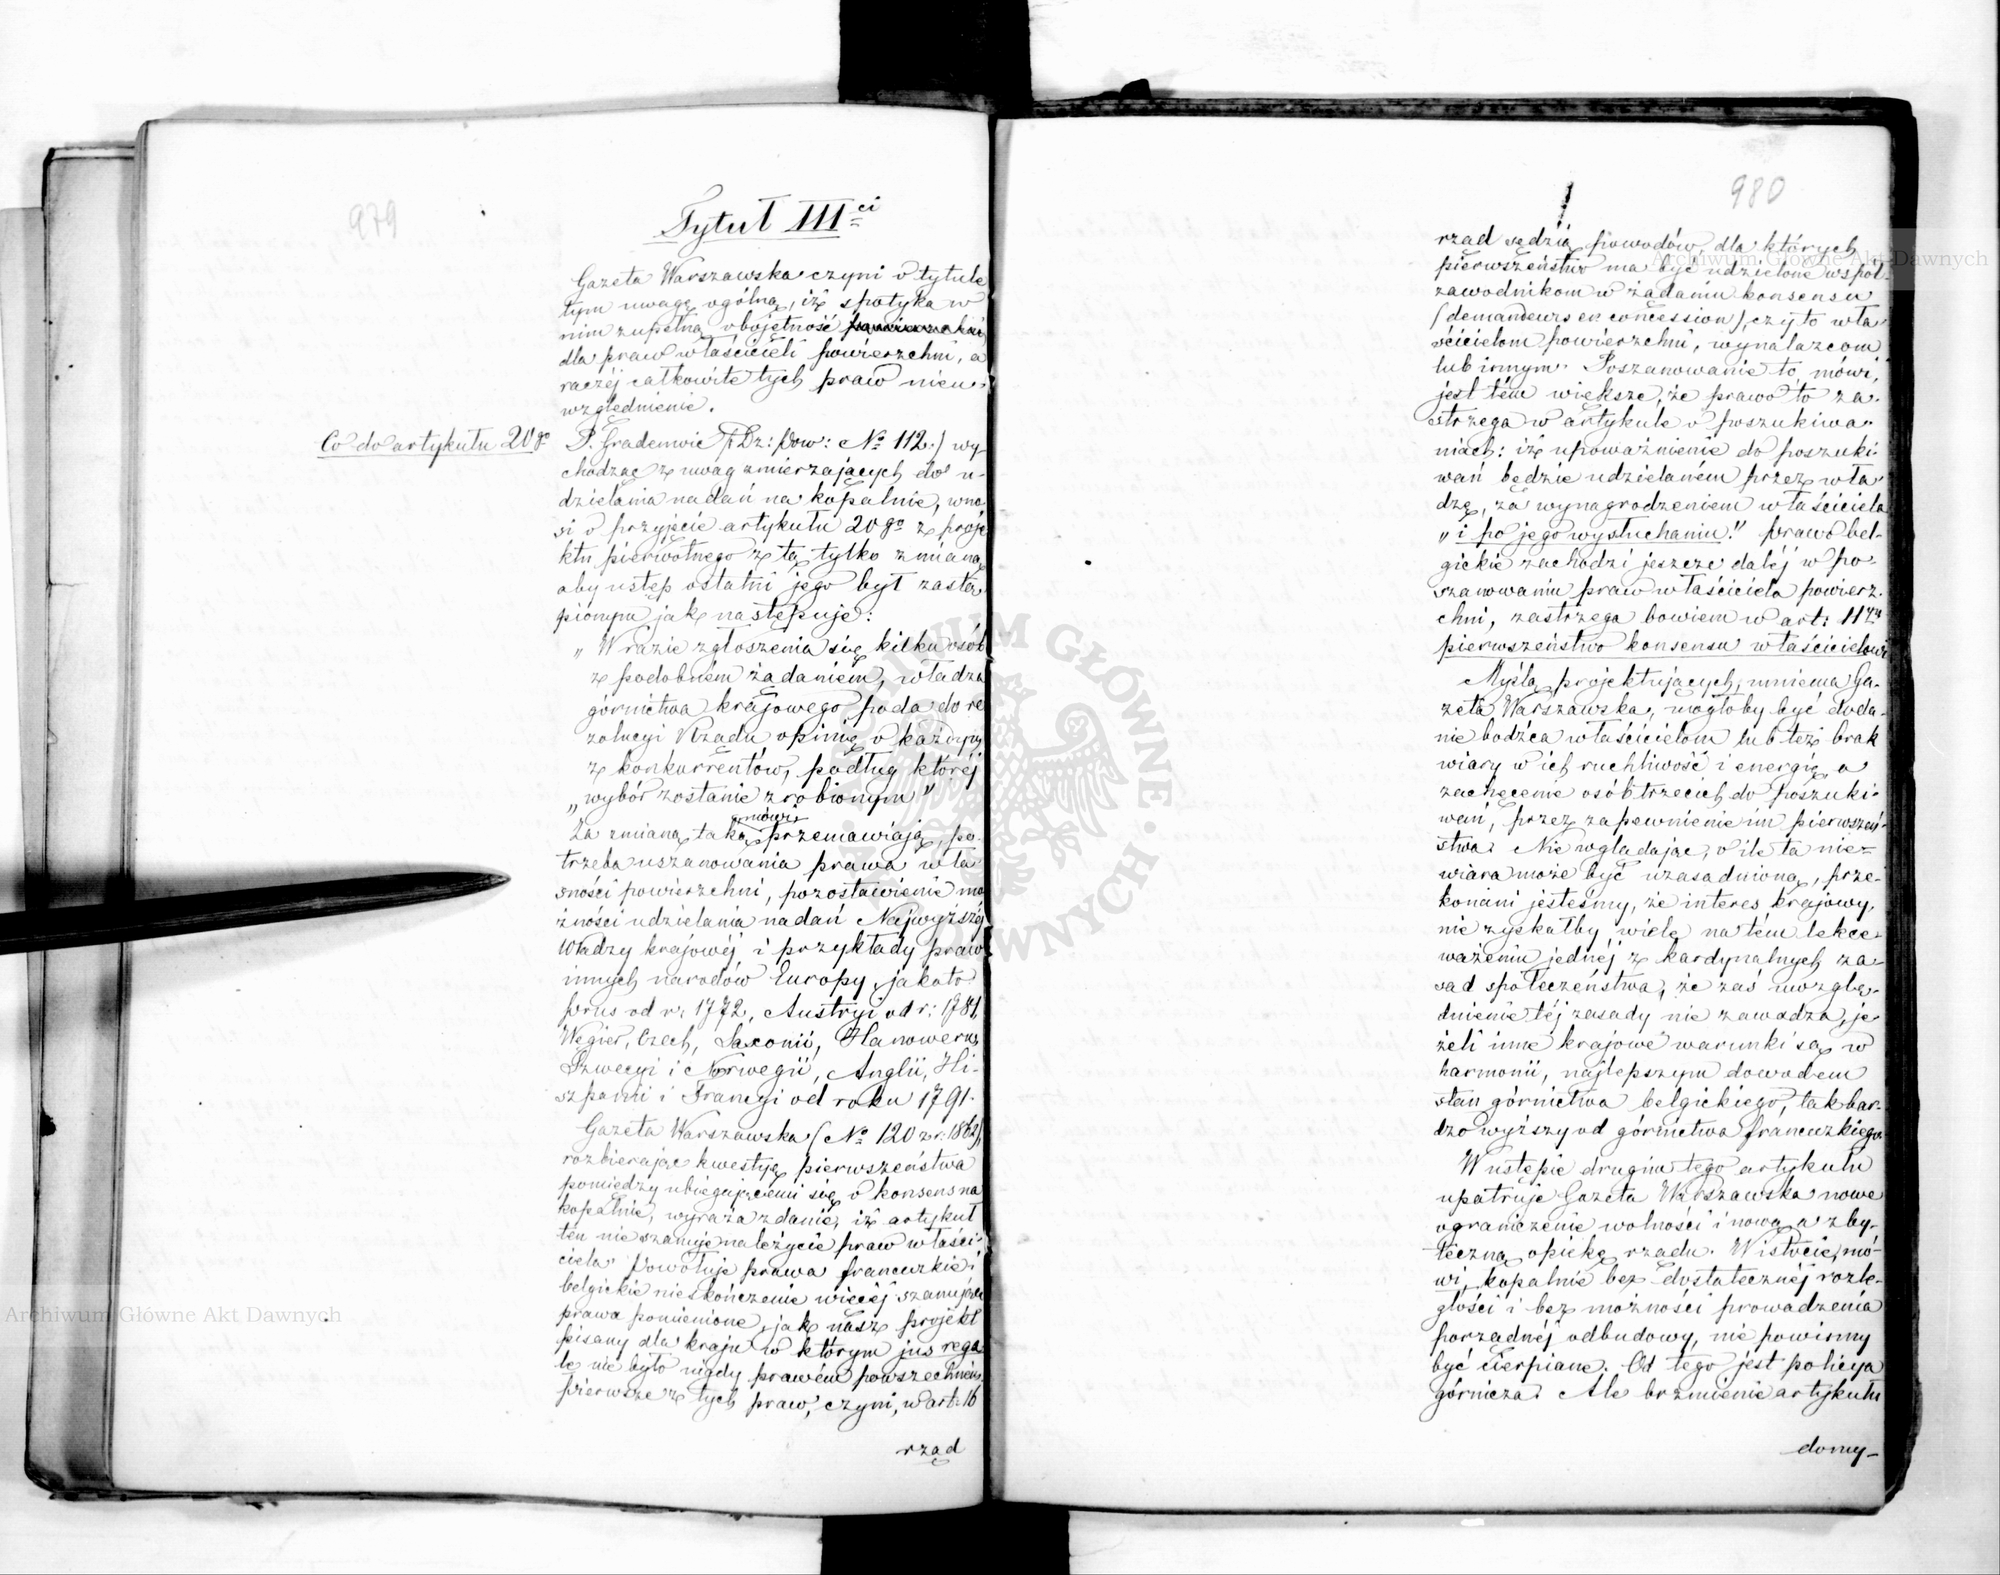 979
Tytuł III ci
Gazeta Warszawska czyni o tytule
tym uwagę ogólną, iż spotyka w
nim zupełną obojętność
dla praw właścicieli powierzchni, a
raczéj całkowite tych praw nieu-
względnienie.
Co do artykułu 20go
P. Gradenwic (Dz: Pow: № 112.) wy
chodząc z uwag zmierzających do u-
dzielania nadań na kopalnie, wno
si o przyjęcie artykułu 20go z proje
ktu pierwotnego z tą tylko zmianą
aby ustęp ostatni jego był zastą
pionym jak następuje:
„W razie zgłoszenia się kilku osób
z podobném żądaniem, władza
górnictwa krajowego poda do re
zolucyi Rządu opinię o każdym
z konkurrentów, podług któréj
„wybór zostanie zrobionym"
mówi
Za zmianą taką przemawiają, po
trzeba uszanowania prawa wła
sności powierzchni, pozostawienie mo
żności udzielania nadań Najwyższéj
Władzy krajowéj i przykłady praw
innych narodów Europy, jakoto
Prus od r: 1772, Austryi od r: 1781,
Węgier, Czech, Saxonii, Hanoweru,
Szwecyi i Norwegii, Anglii, Hi-
szpanii i Francyi od roku 1791.
Gazeta Warszawska (№ 120 z r: 1862),
rozbierając kwestyę pierwszeństwa
pomiędzy ubiegającemi się o konsens na
kopalnie, wyraża zdanie, iż artykuł
ten nie szanuje należycie praw właści-
ciela. Powołuje prawa francuzkie i
belgickie nieskończenie więcéj szanujące
prawa pomienione, jak nasz projekt
pisany dla kraju w którym jus rega
le nie było nigdy prawém powszechném.
Pierwsze z tych praw, czyni, w art: 16
rząd
980
rząd sędzią powodów, dla których
pierwszeństwo ma być udzielone współ
zawodnikom w żądaniu konsensu
(demandeurs en concession), czy to wła-
ścicielom powierzchni, wynalazcom
lub innym. Poszanowanie to, mówi,
jest tém większe, że prawo to za-
strzega w artykule o poszukiwa-
niach: iż upoważnienie do poszuki-
wań będzie udzielaném przez wła-
dzę, za wynagrodzeniem właściciela
„i po jego wysłuchaniu." Prawo bel-
gickie zachodzi jeszcze daléj w po-
szanowaniu praw właściciela powierz-
chni, zastrzega bowiem w art: 11tym
pierwszeństwo konsensu właścicielowi
Myślą projektujących, mniema Ga-
zeta Warszawska, mogłoby być doda-
nie bodźca właścicielom lub też brak
wiary w ich ruchliwość i energię a
zachęcenie osób trzecich do poszuki-
wań, przez zapewnienie im pierwszeń-
stwa. Nie wglądając, o ile ta nie-
wiara może być uzasadnioną, prze-
konani jesteśmy, że interes krajowy,
nie zyskałby wiele na tém lekce-
ważeniu jednéj z kardynalnych za-
sad społeczeństwa, że zaś uwzglę-
dnienie téj zasady nie zawadza, je-
żeli inne krajowe warunki są w
harmonii, najlepszym dowodem
stan górnictwa belgickiego, tak bar-
dzo wyższy od górnictwa francuzkiego.
W ustępie drugim tego artykułu
upatruje Gazeta Warszawska nowe
ograniczenie wolności i nową a zby-
teczną opiekę rządu. W istocie, mó-
wi, kopalnie bez dostatecznéj rozle-
głości i bez możności prowadzenia
porządnéj odbudowy, nie powinny
być cierpiane. Od tego jest policya
górnicza. Ale brzmienie artykułu
domy-
Archiwum Główne Akt Dawnych
Archiwum Główne Akt Dawnych
ARCHIWUM GŁÓWNE AKT DAWNYCH